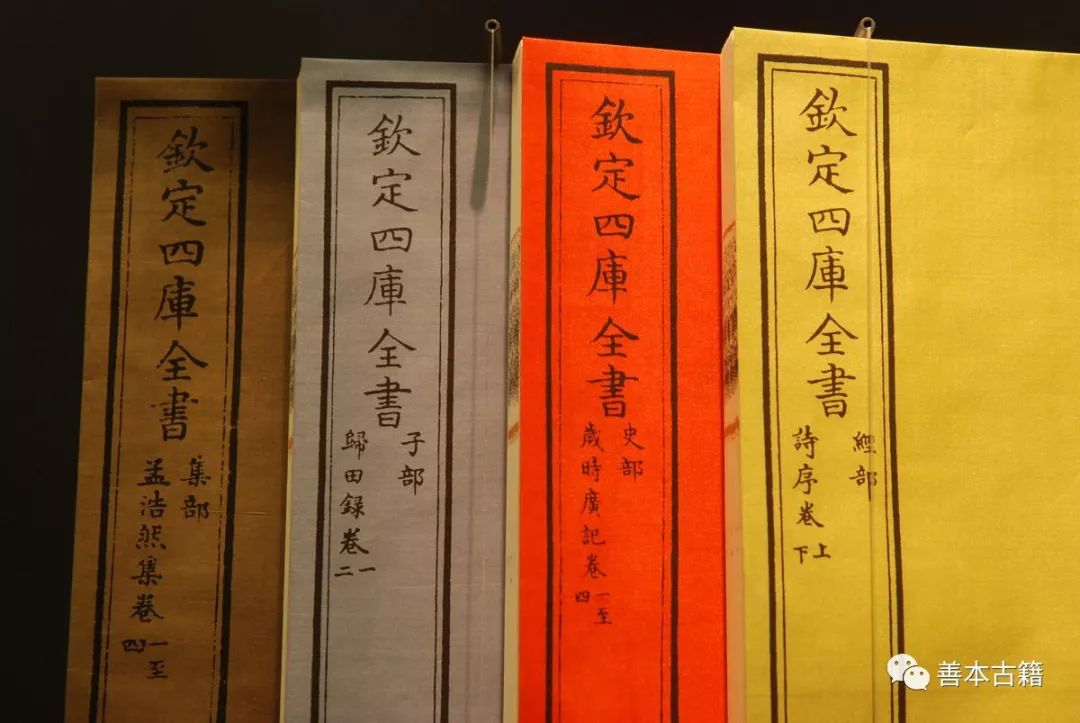 欽定四庫全書
經部
詩序卷上下
欽定四庫全書
史部
歲時廣記卷一至四
欽定四庫全書
子部
歸田録卷一二
欽定四庫全書
集部
孟浩然集卷一至四
善本古籍